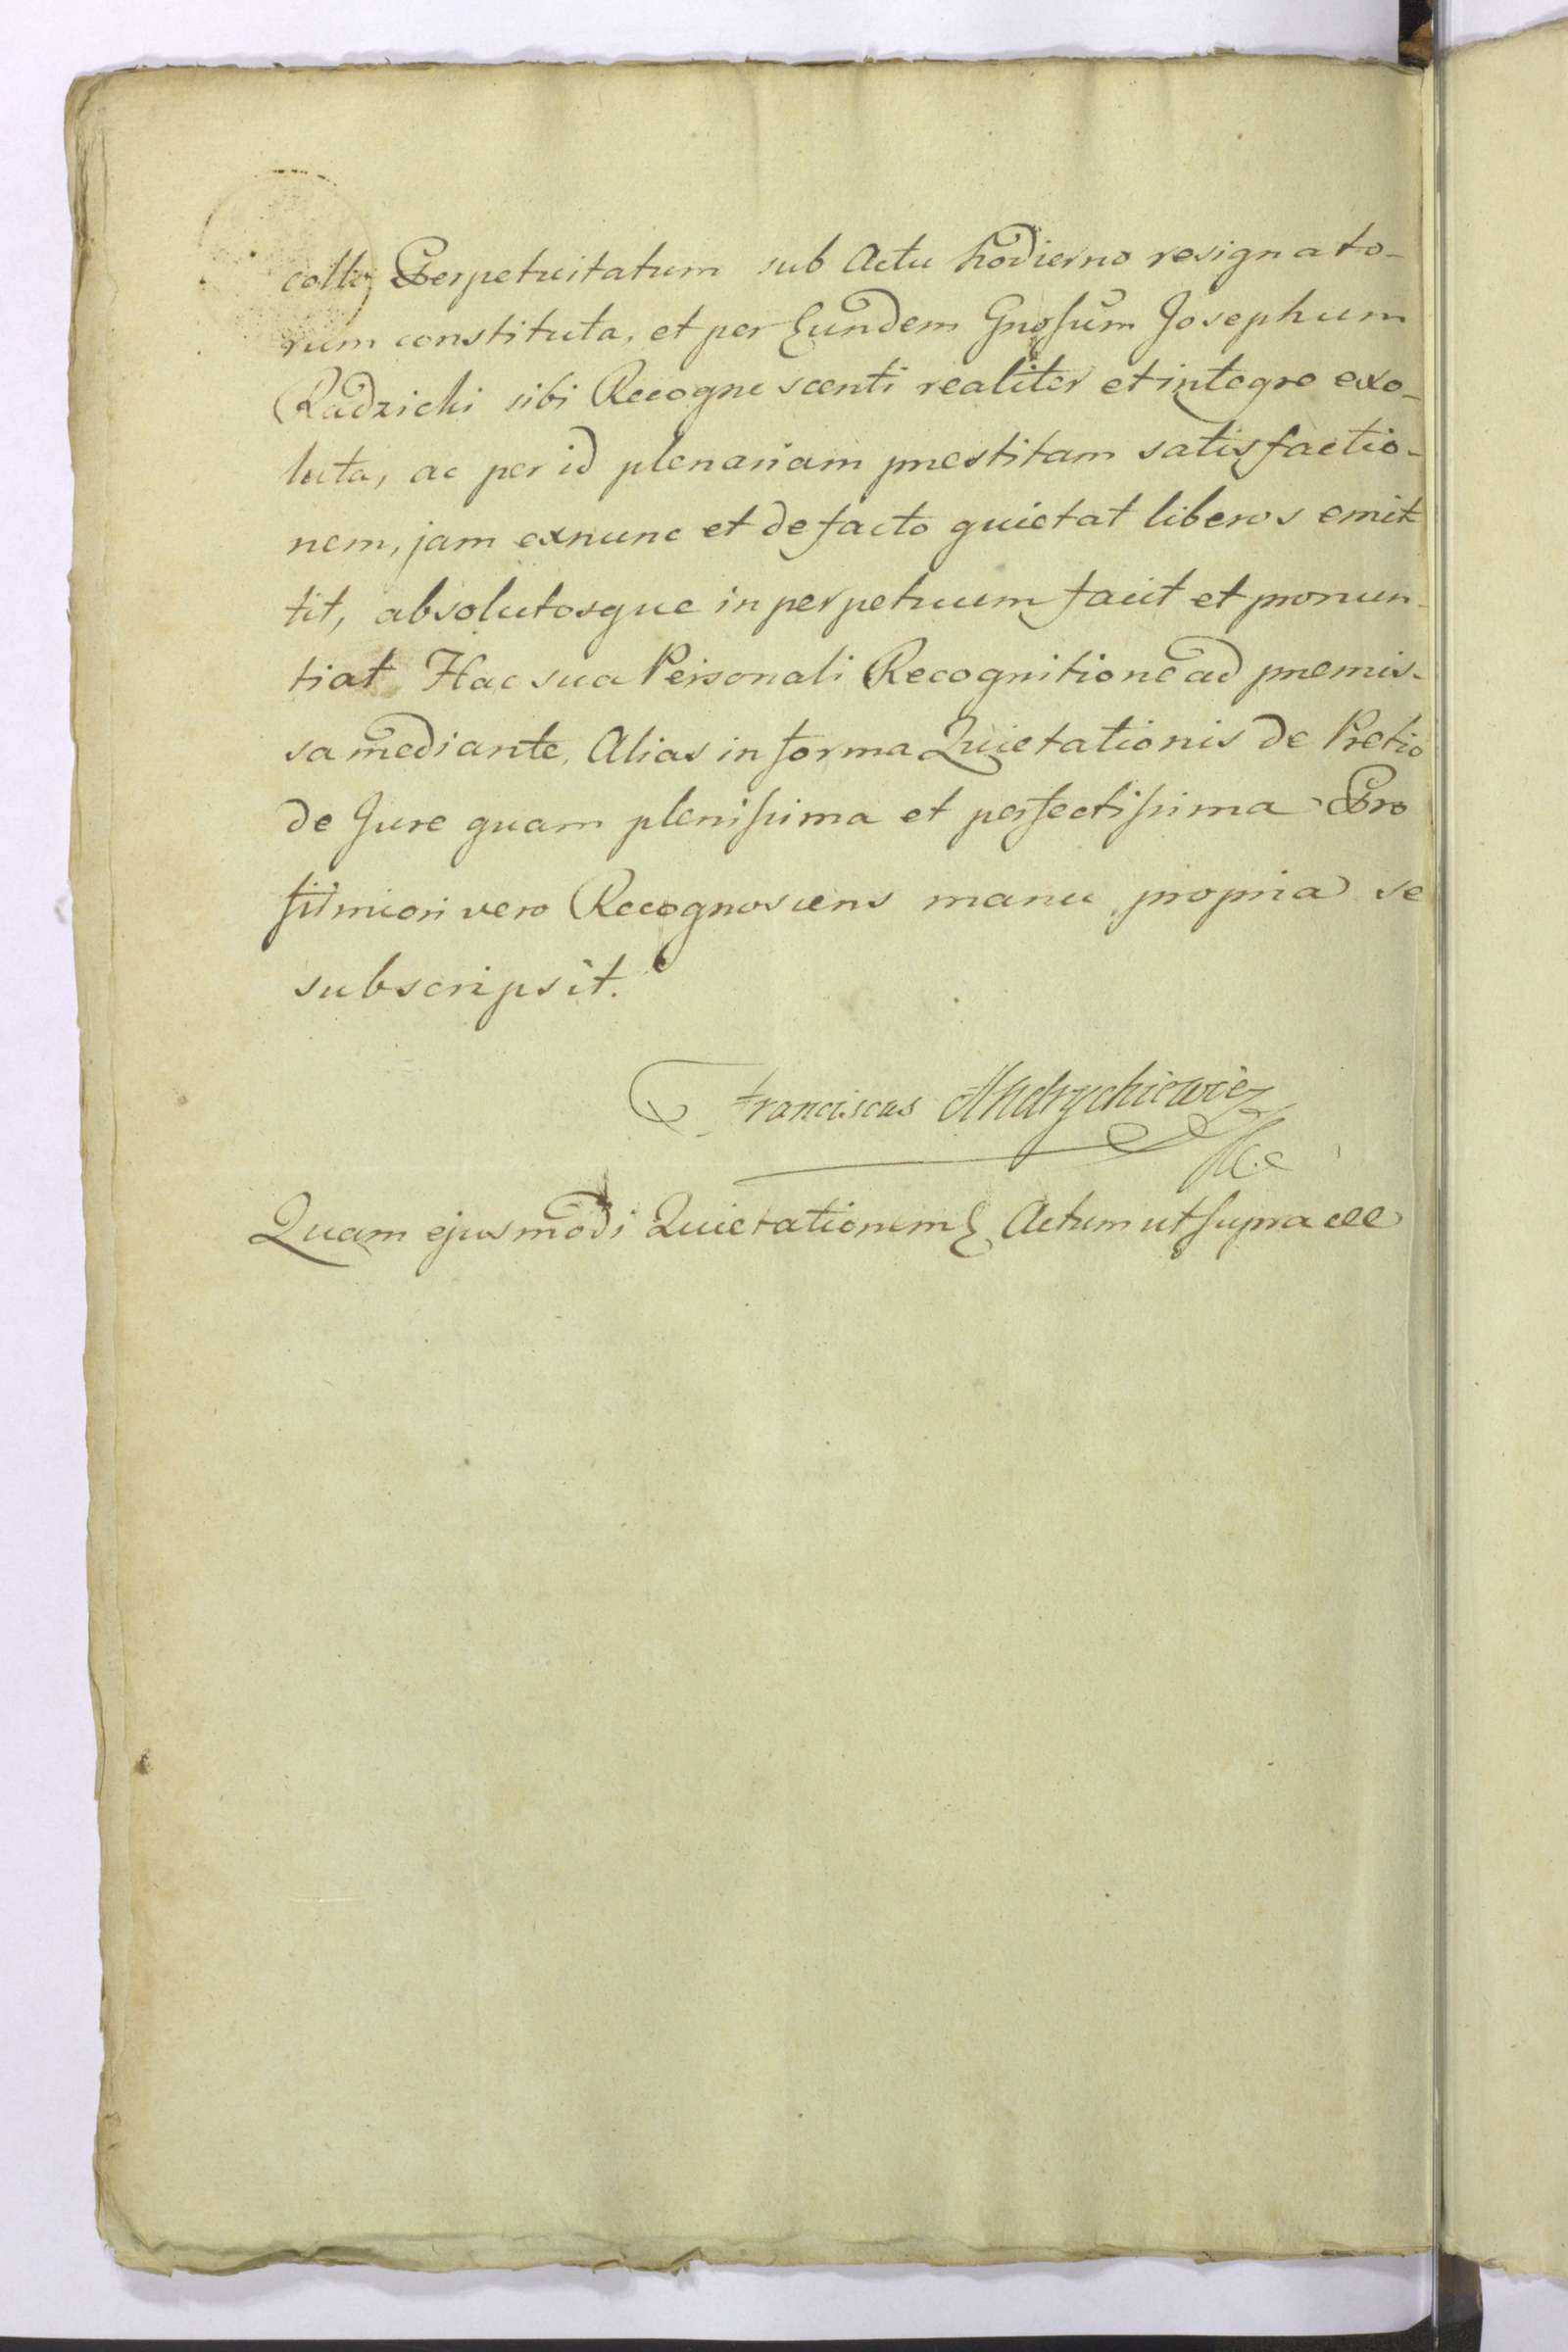 collo Perpetuitatum sub Actu hodierno resignato-
rum constituta, et per Eundem Gnosum Josephum
Radzicki sibi Recognoscenti realiter et integre exo-
luta, ac per id plenariam prestitam satisfactio-
nem, jam exnunc et de facto quietat liberos emit
tit, absolutosque in perpetuum facit et pronun-
tiat Hac sua Personali Recognitione ad premis-
sa mediante, Alias in forma Quietationis de Pretio
de Jure quam plenissima et perfectissima Pro
firmiori vero Recognoscens manu propria se
subscripsit.
Franciscus Andrychiewicz
Quam ejusmodi Quietationem Actum ut supra